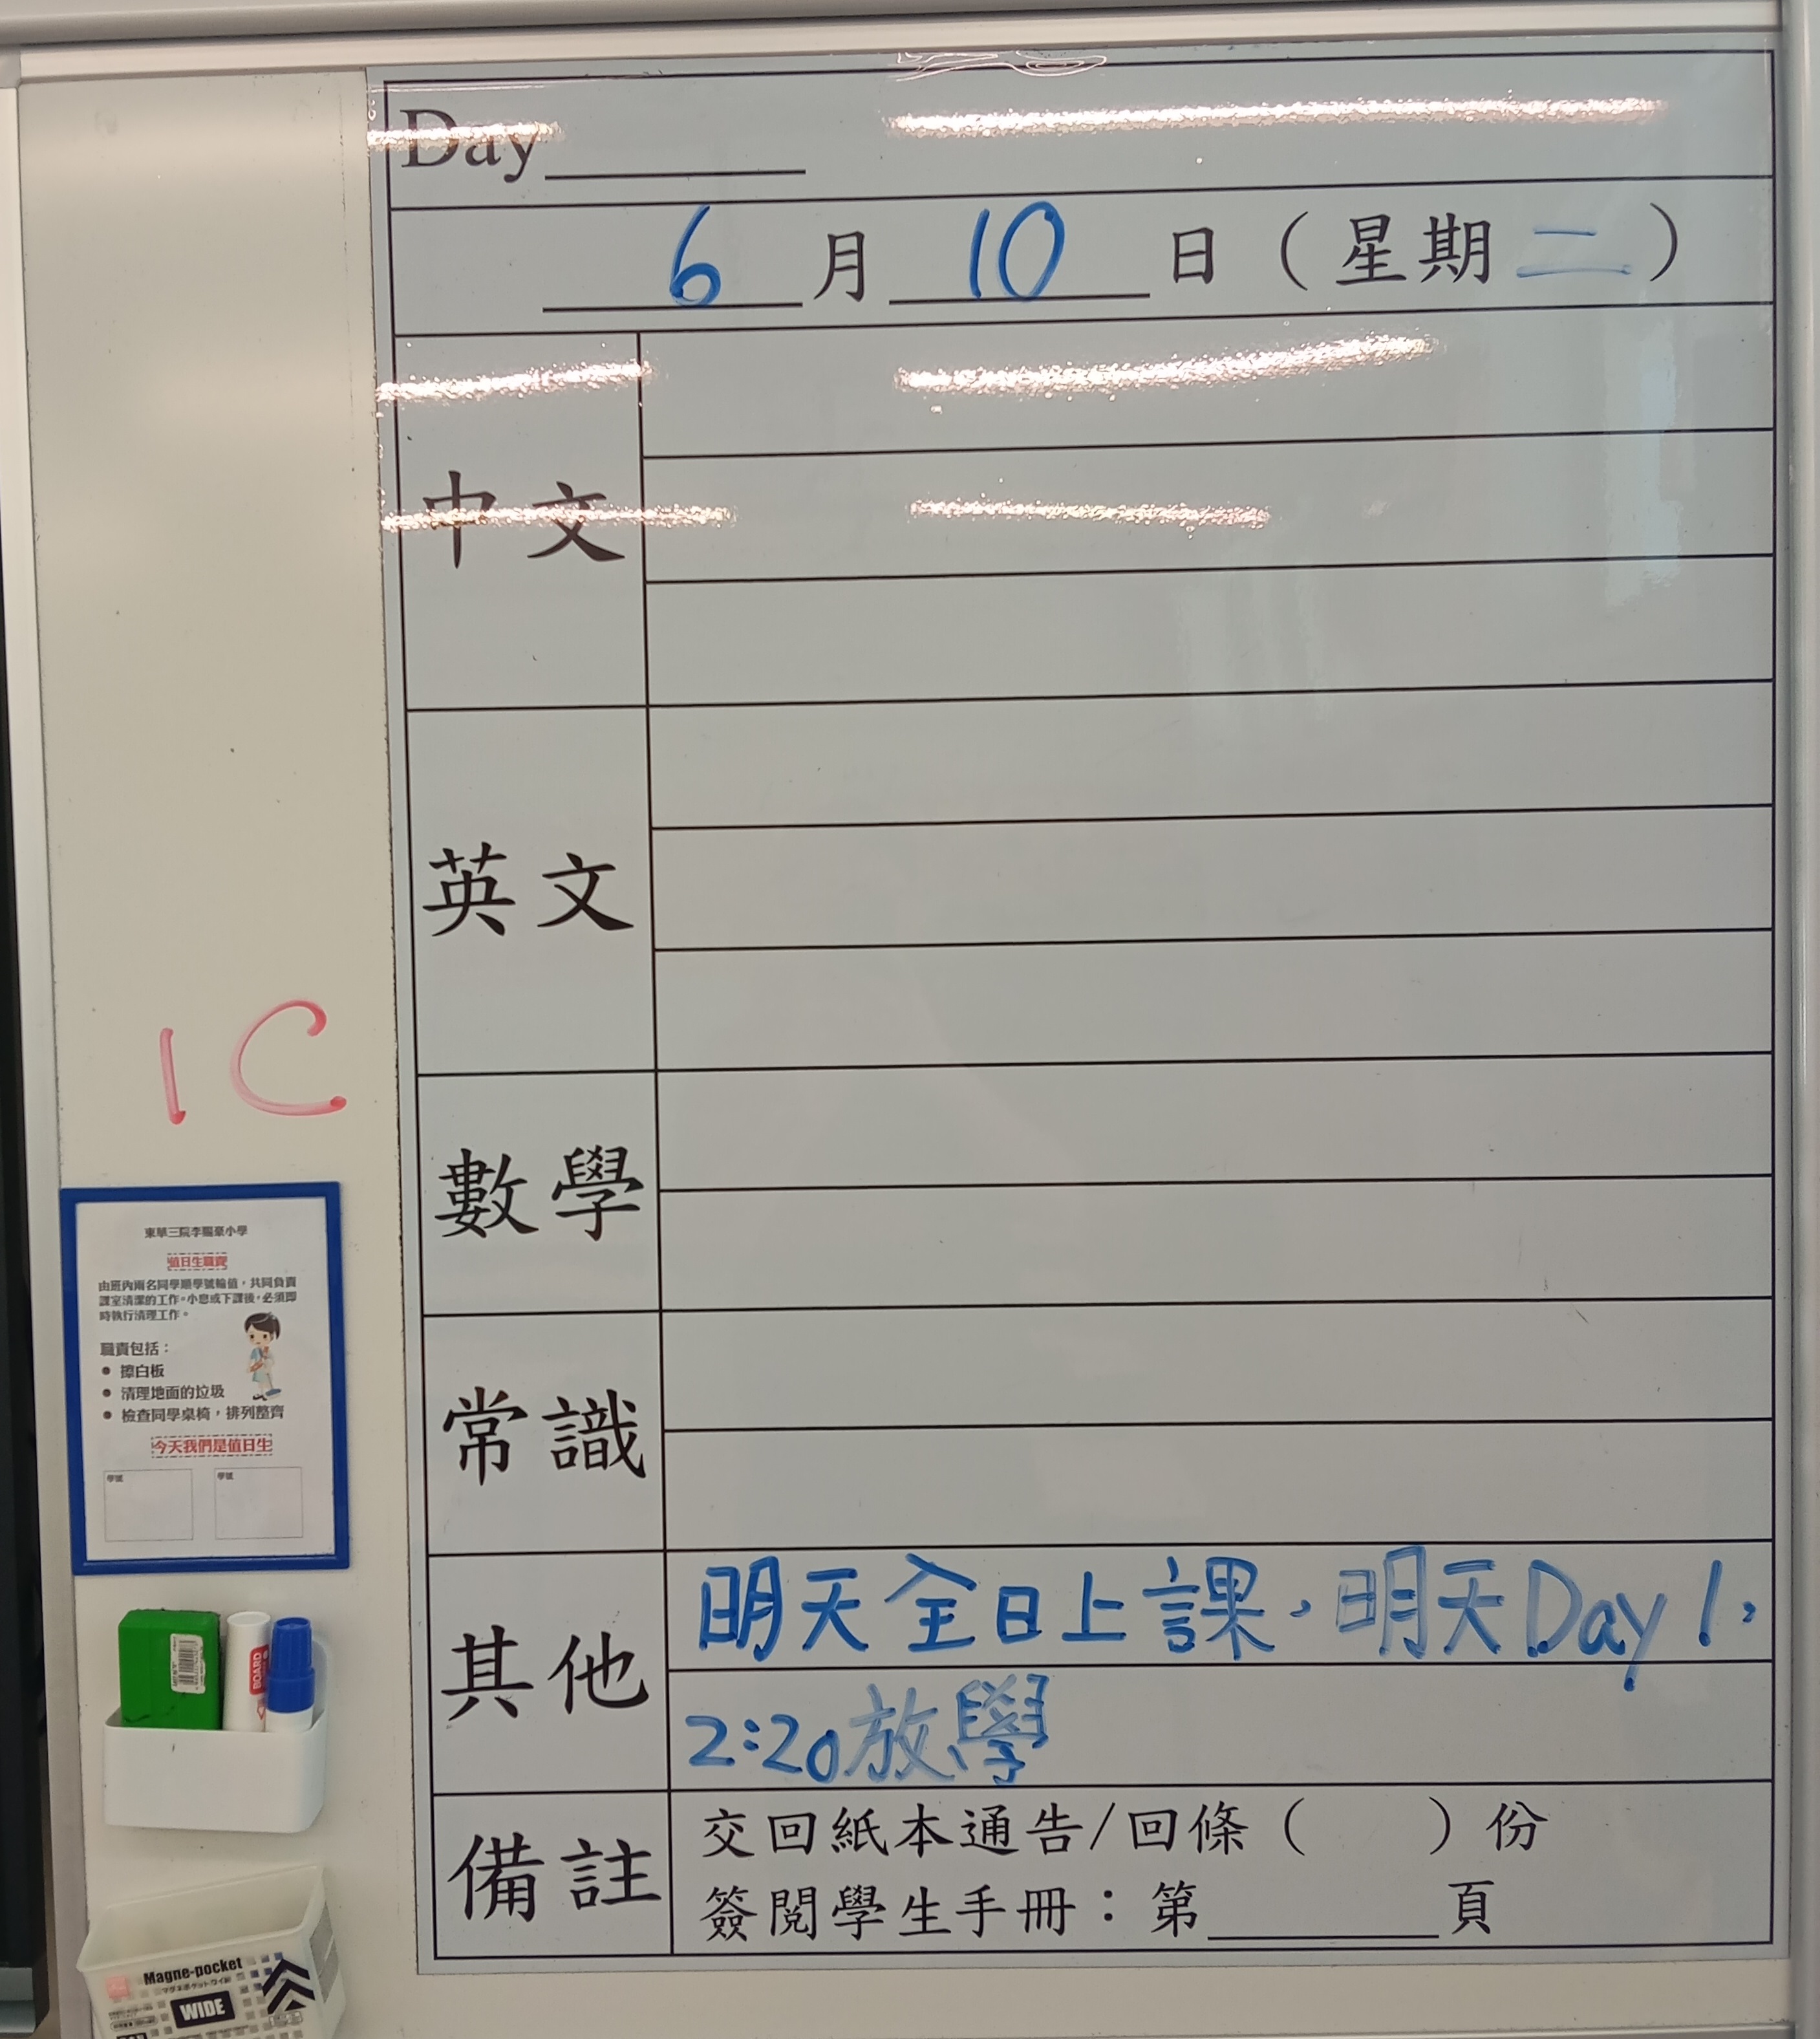 Day
6月10日（星期二）
中文
英文
數學
常識
其他
明天全日上課，明天Day 1，
2:20放學
備註
交回紙本通告/回條（　　）份
簽閱學生手冊：第______頁
1C
東華三院李賜豪小學
值日生職責
由班內兩名同學順學號輪值，共同負責
課室清潔的工作。小息或下課後，必須即
時執行清理工作。
職責包括：
● 擦白板
● 清理地面的垃圾
● 檢查同學桌椅，排列整齊
今天我們是值日生
學號 學號
BOARD
Magne-pocket
マグネポケット ワイド
WIDE